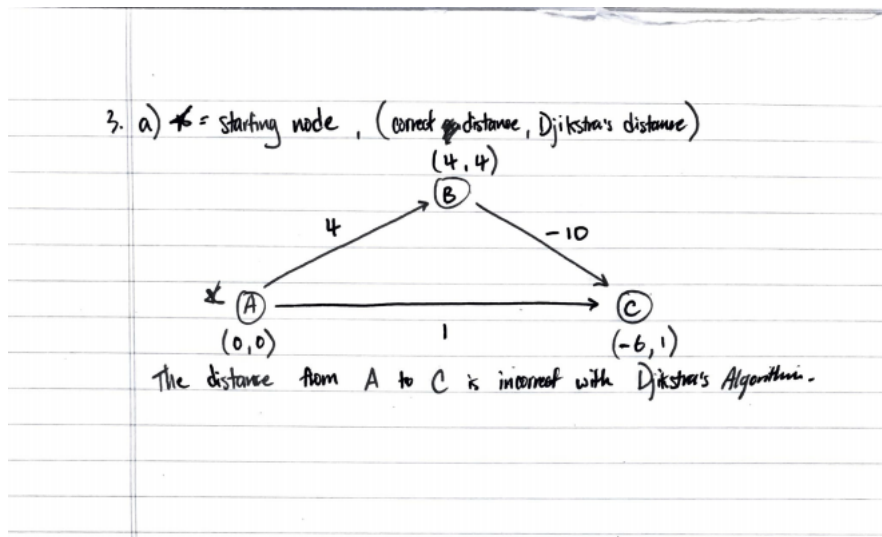 3. a) * = starting node, (correct distance, Djikstra's distance)
(4, 4)
B
4
-10
* A
C
(0,0)
1
(-6,1)
The distance from A to C is incorrect with Djikstra's Algorithm.